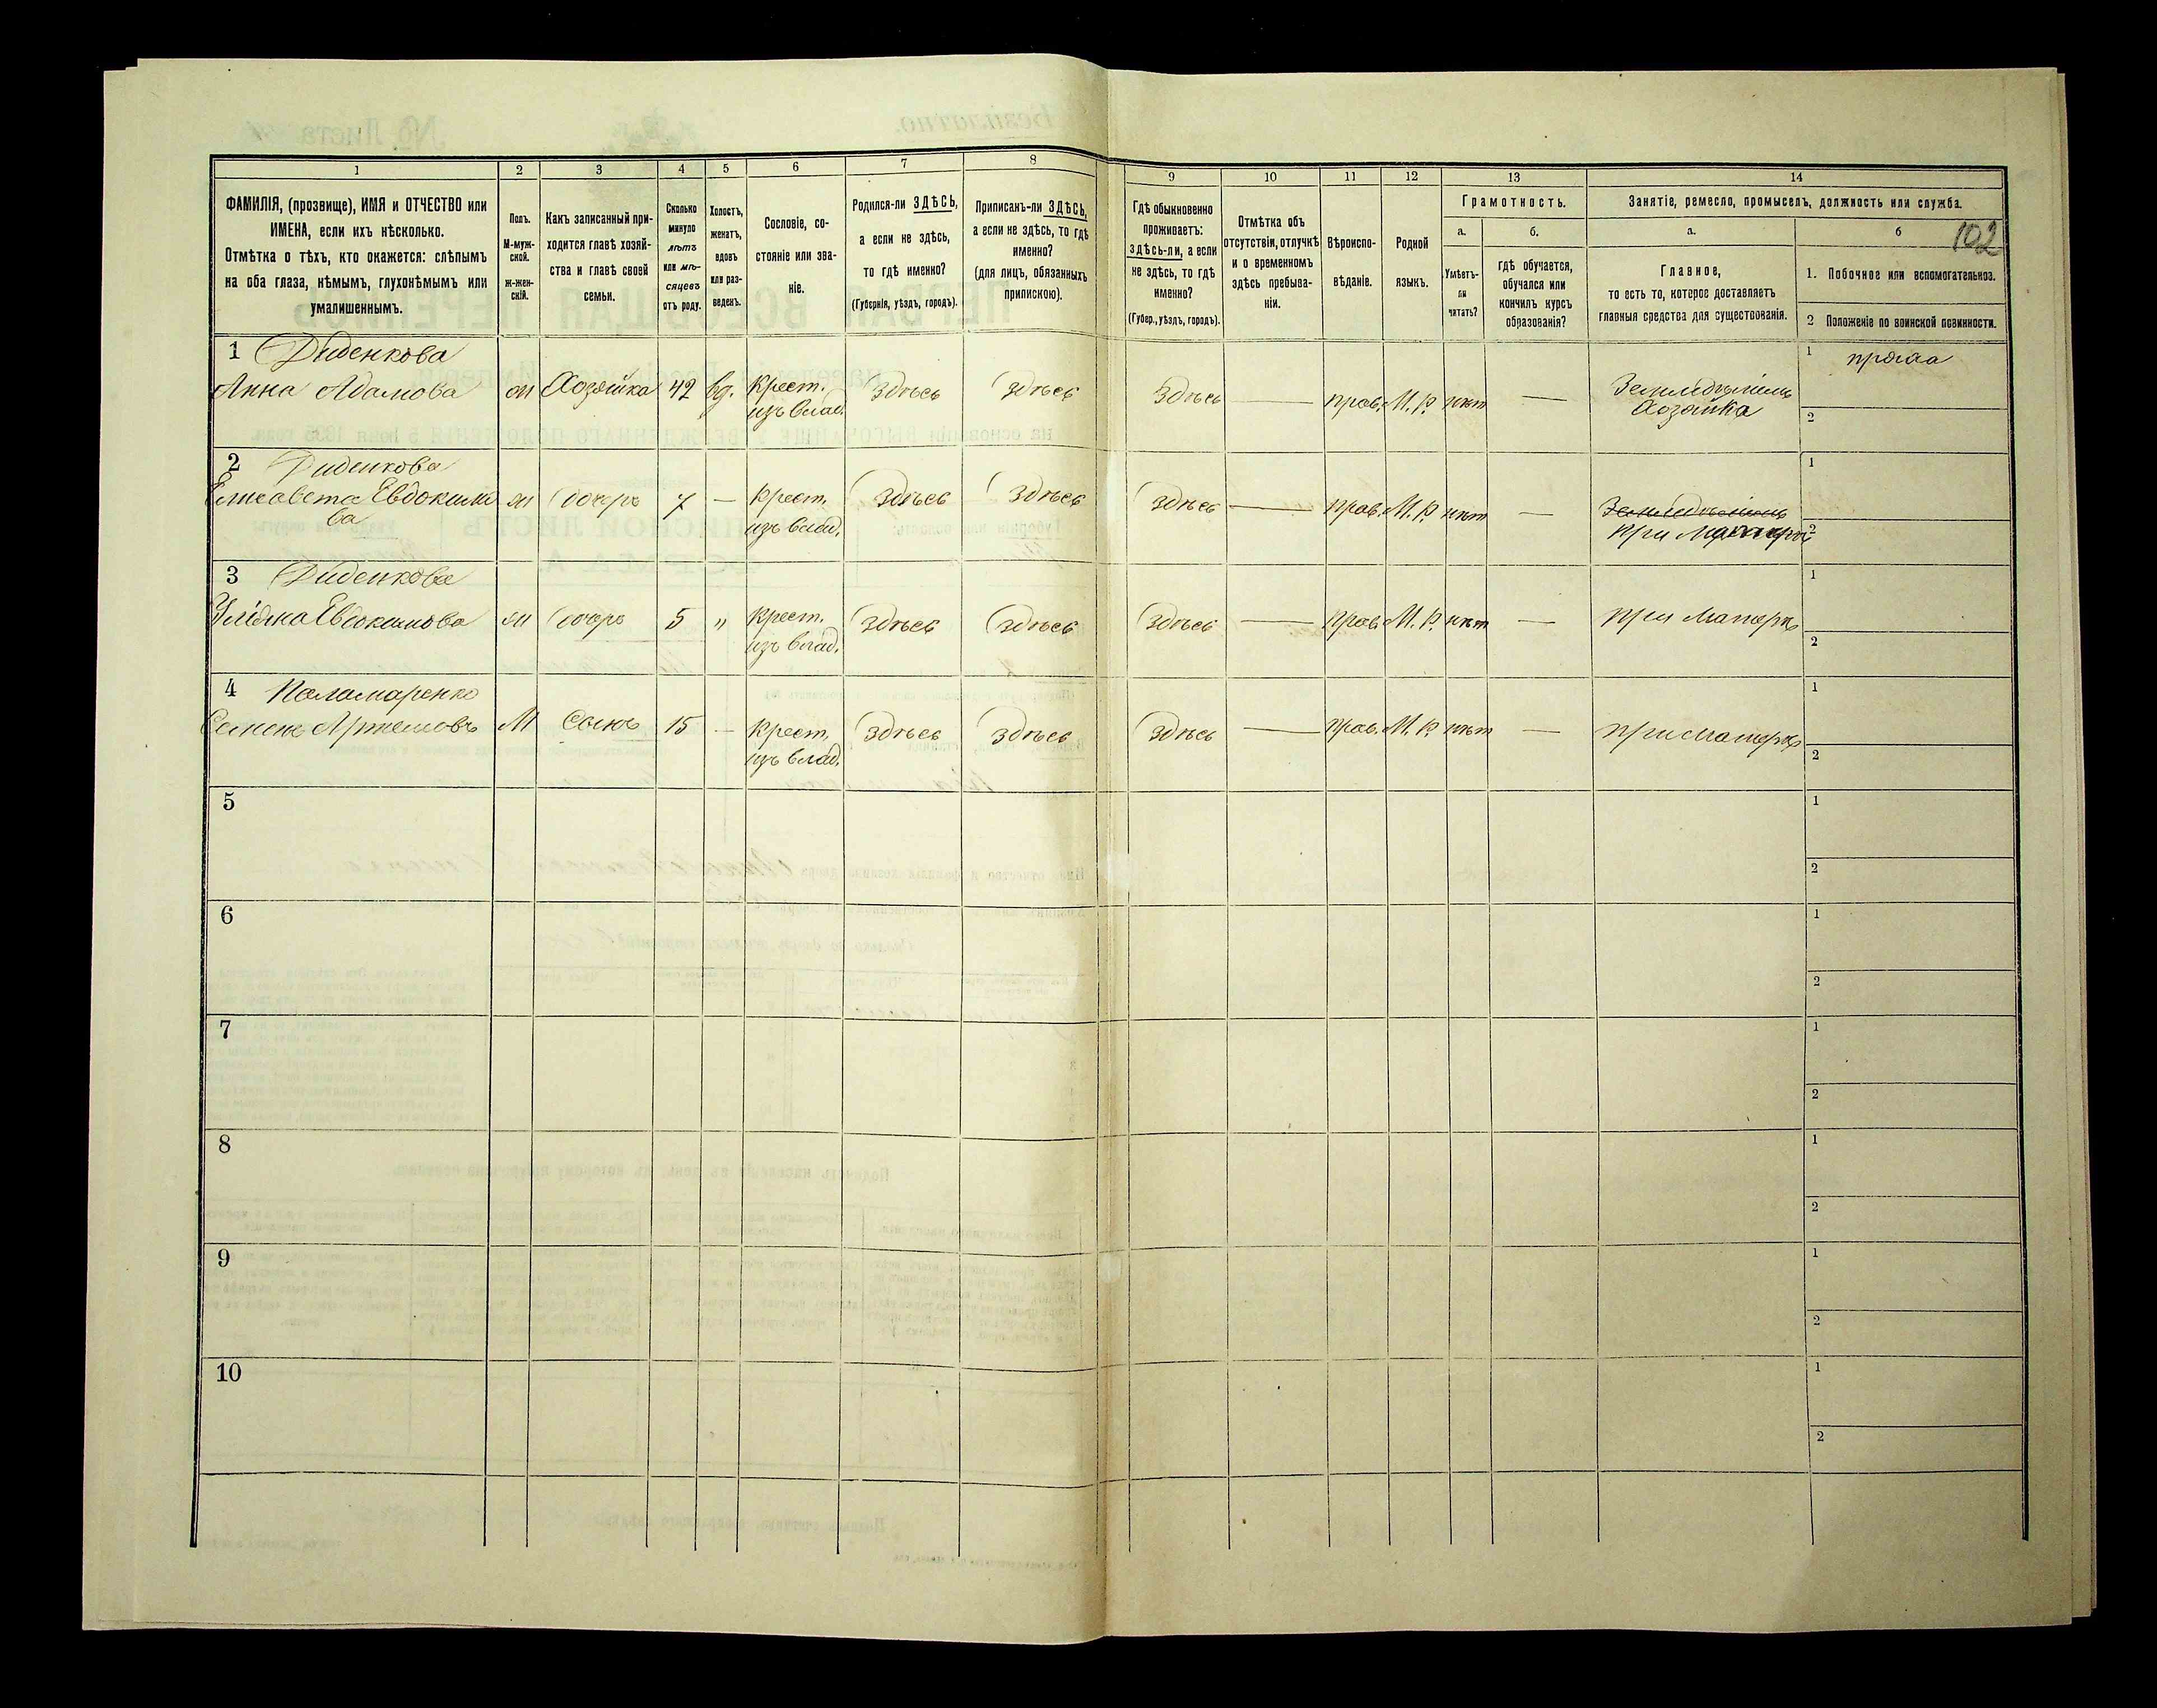 1 2 3 4 5 6 7 8 9 10 11 12 13 14
ФАМИЛІЯ, (прозвище), ИМЯ и ОТЧЕСТВО или
ИМЕНА, если ихъ нѣсколько.
Отмѣтка о тѣхъ, кто окажется: слѣпымъ
на оба глаза, нѣмымъ, глухонѣмымъ или
умалишеннымъ.
Полъ.
М-муж-
ской.
Ж-жен-
скій.
Какъ записанный при-
ходится главѣ хозяй-
ства и главѣ своей
семьи.
Сколько
минуло
лѣтъ
или мѣ-
сяцевъ
отъ роду.
Холостъ,
женатъ,
вдовъ
или раз-
веденъ.
Сословіе, со-
стояніе или зва-
ніе.
Родился-ли ЗДѢСЬ,
а если не здѣсь,
то гдѣ именно?
(Губернія, уѣздъ, городъ).
Приписанъ-ли ЗДѢСЬ,
а если не здѣсь, то гдѣ
именно?
(для лицъ, обязанныхъ
припискою).
Гдѣ обыкновенно
проживаетъ:
здѣсь-ли, а если
не здѣсь, то гдѣ
именно?
(Губер., уѣздъ, городъ).
Отмѣтка объ
отсутствіи, отлучкѣ
и о временномъ
здѣсь пребыва-
ніи.
Вѣроиспо-
вѣданіе.
Родной
языкъ.
Грамотность.
а.
Умѣетъ-
ли
читать?
б.
гдѣ обучается,
обучался или
кончилъ курсъ
образованія?
Занятіе, ремесло, промыселъ, должность или служба.
а.
Главное,
то есть то, которое доставляетъ
главныя средства для существованія.
б
102
1. Побочное или вспомогательное.
2 Положеніе по воинской повинности.
1 Диденкова
Анна Адамова ж Хозяйка 42 вд. Крест. изъ влад. Здѣсь Здѣсь Здѣсь — прав. М.Р. нѣт — Хозяйка
1 пряха
2
2 Диденкова
Елисавета Евдокимо
ва ж дочерь 7 — Крест. изъ влад. Здѣсь Здѣсь Здѣсь — прав. М.Р. нѣт — при Матери
1
2
3 Диденкова
Евдокимова ж дочерь 5 „ Крест. изъ влад. Здѣсь Здѣсь Здѣсь — прав. М.Р. нѣт — при Матерѣ
1
2
4 Паламаренко
Семенъ Артемовъ М Сынъ 15 — Крест. изъ влад. Здѣсь Здѣсь Здѣсь — прав. М.Р. нѣт — при Матерѣ
1
2
5
1
2
6
1
2
7
1
2
8
1
2
9
1
2
10
1
2